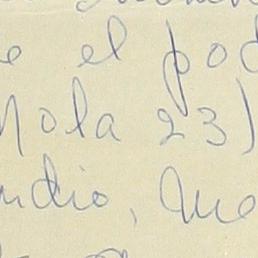 e el pod
ola 23)
ndio, Me